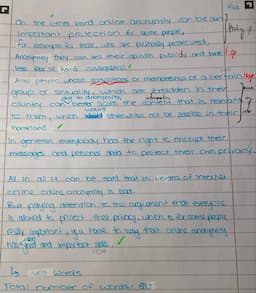 On the other hand online anonymity can be an
important protection for some people,
for example for those, who are politically persecuted.
Anonymously they can tell their opinion publicly and have
less fear of hard consequences.
Also people whose or membership of a certain
group or sexuality, which are forbidden in their
country can better access the content that is relevant
to them, which would otherwise not be possible in their
homeland.
In general everybody has the right to encrypt their
messages and personal data to protect their own privacy.
All in all it can be said that in terms of Internet
crime online anonymity is bad.
But paying attention to the argument that everyone
is allowed to protect their privacy, which is for some people
really important, you have to say that online anonymity
has good and important
words
Total number of words: